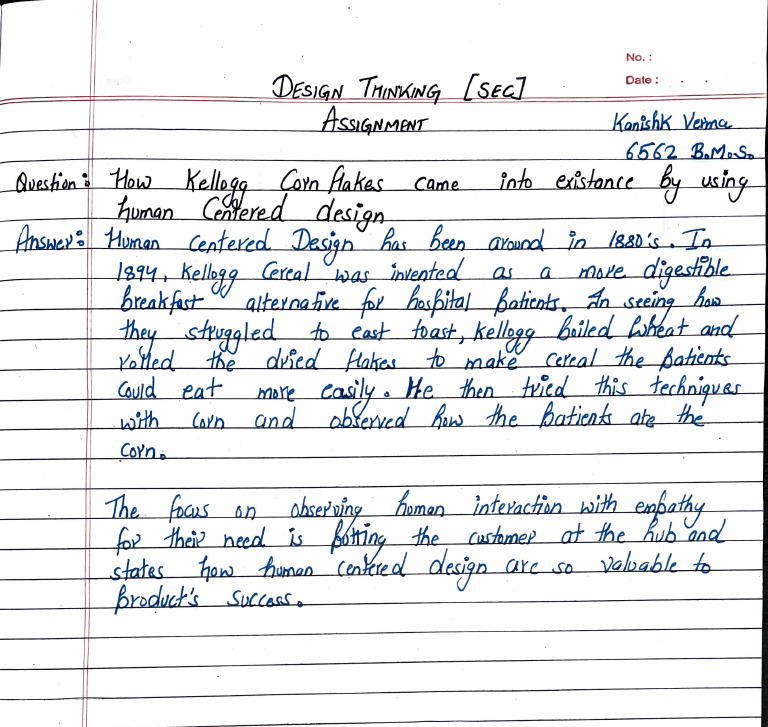 No. :
Date : . .
DESIGN THINKING [SEC]
ASSIGNMENT
Kanishk Verma
6562 B.M.S.
Question: How Kellogg Corn flakes came into existance by using
human Centered design
Answer: Human Centered Design has been around in 1880's. In
1894, Kellogg Cereal was invented as a more digestible
breakfast alternative for hospital patients. In seeing how
they struggled to east toast, Kellogg boiled wheat and
rolled the dried flakes to make cereal the patients
could eat more easily. He then tried this techniques
with corn and observed how the patients ate the
corn.
The focus on observing human interaction with empathy
for their need is putting the customer at the hub and
states how human centered design are so valuable to
product's success.